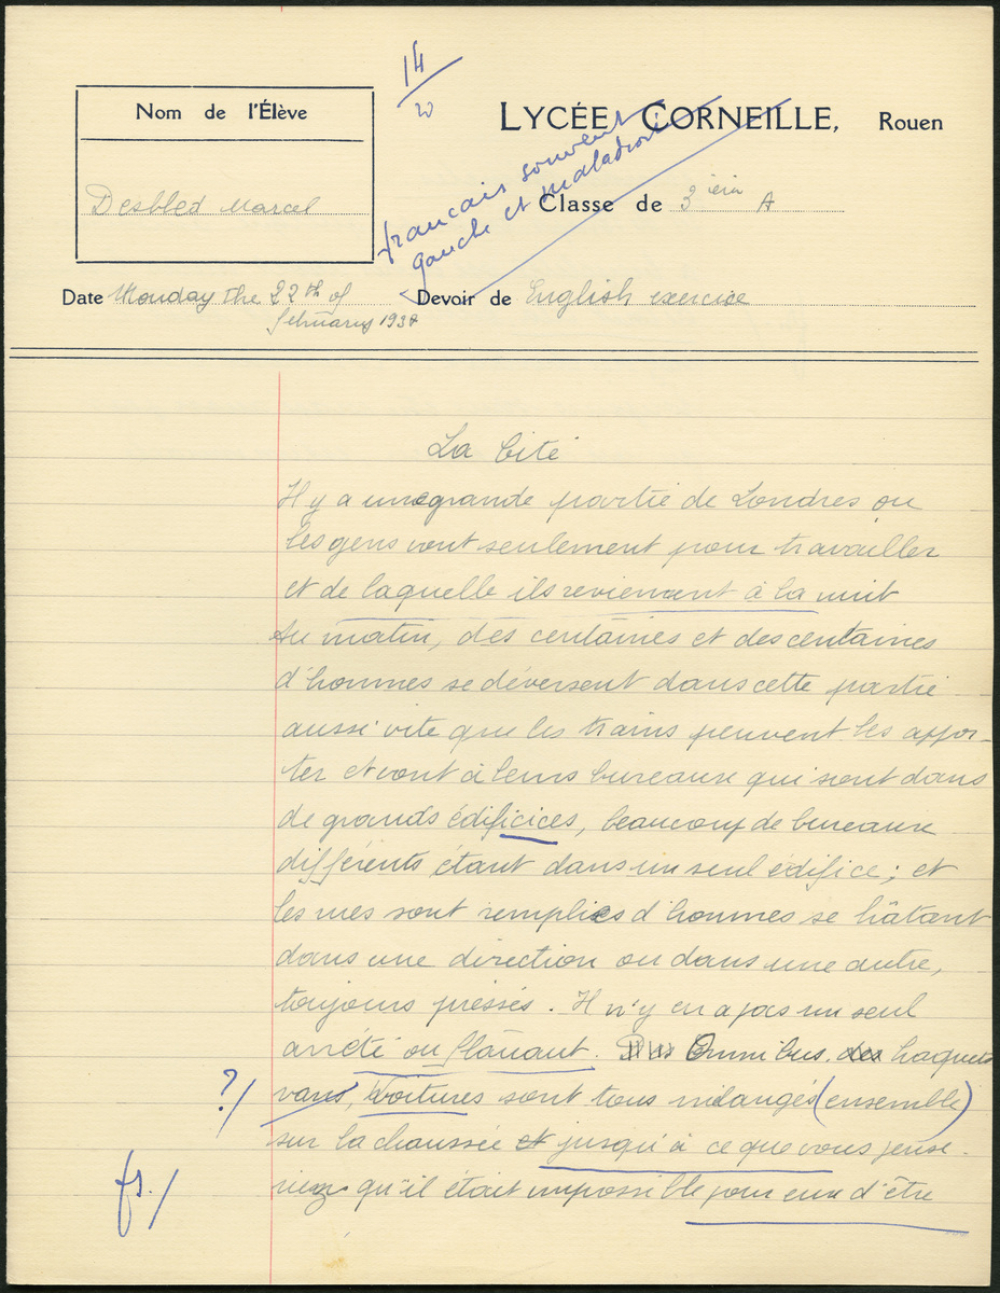 14
20
Nom de l'Élève
LYCÉE CORNEILLE, Rouen
francais souvent
gauche et maladroit
Desbled Marcel
Classe de 3ième A
Date Monday the 22th of
february 1937
Devoir de English exercice
La Cité
Il y a une grande partie de Londres ou
les gens vont seulement pour travailler
et de laquelle ils reviennent à la nuit
Au matin, des centaines et des centaines
d'hommes se déversent dans cette partie
aussi vite que les trains peuvent les appor-
ter et vont à leurs bureaux qui sont dans
de grands édificices, beaucoup de bureaux
différents étant dans un seul édifice ; et
les rues sont remplies d'hommes se hâtant
dans une direction ou dans une autre,
toujours pressés. Il n'y en a pas un seul
arrêté ou flânant. Omnibus, haquets
?/ vans, Voitures sont tous mélangés (ensemble)
sur la chaussée et jusqu'à ce que vous pense-
fs./ riez qu'il était impossible pour eux d'être